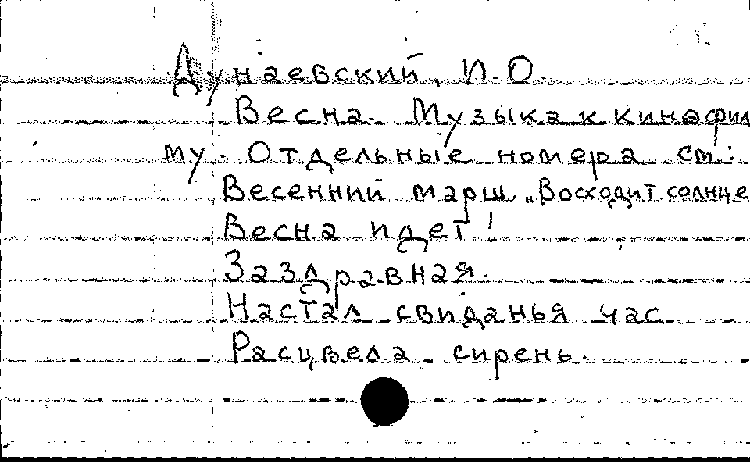 Дунаевский, И.О.
Весна. Музыка к кинофиль
му. Отдельные номера см.:
Весенний марш „Восходит солнце
Весна идет!
Заздравная.
Настал свиданья час
Расцвела сирень.